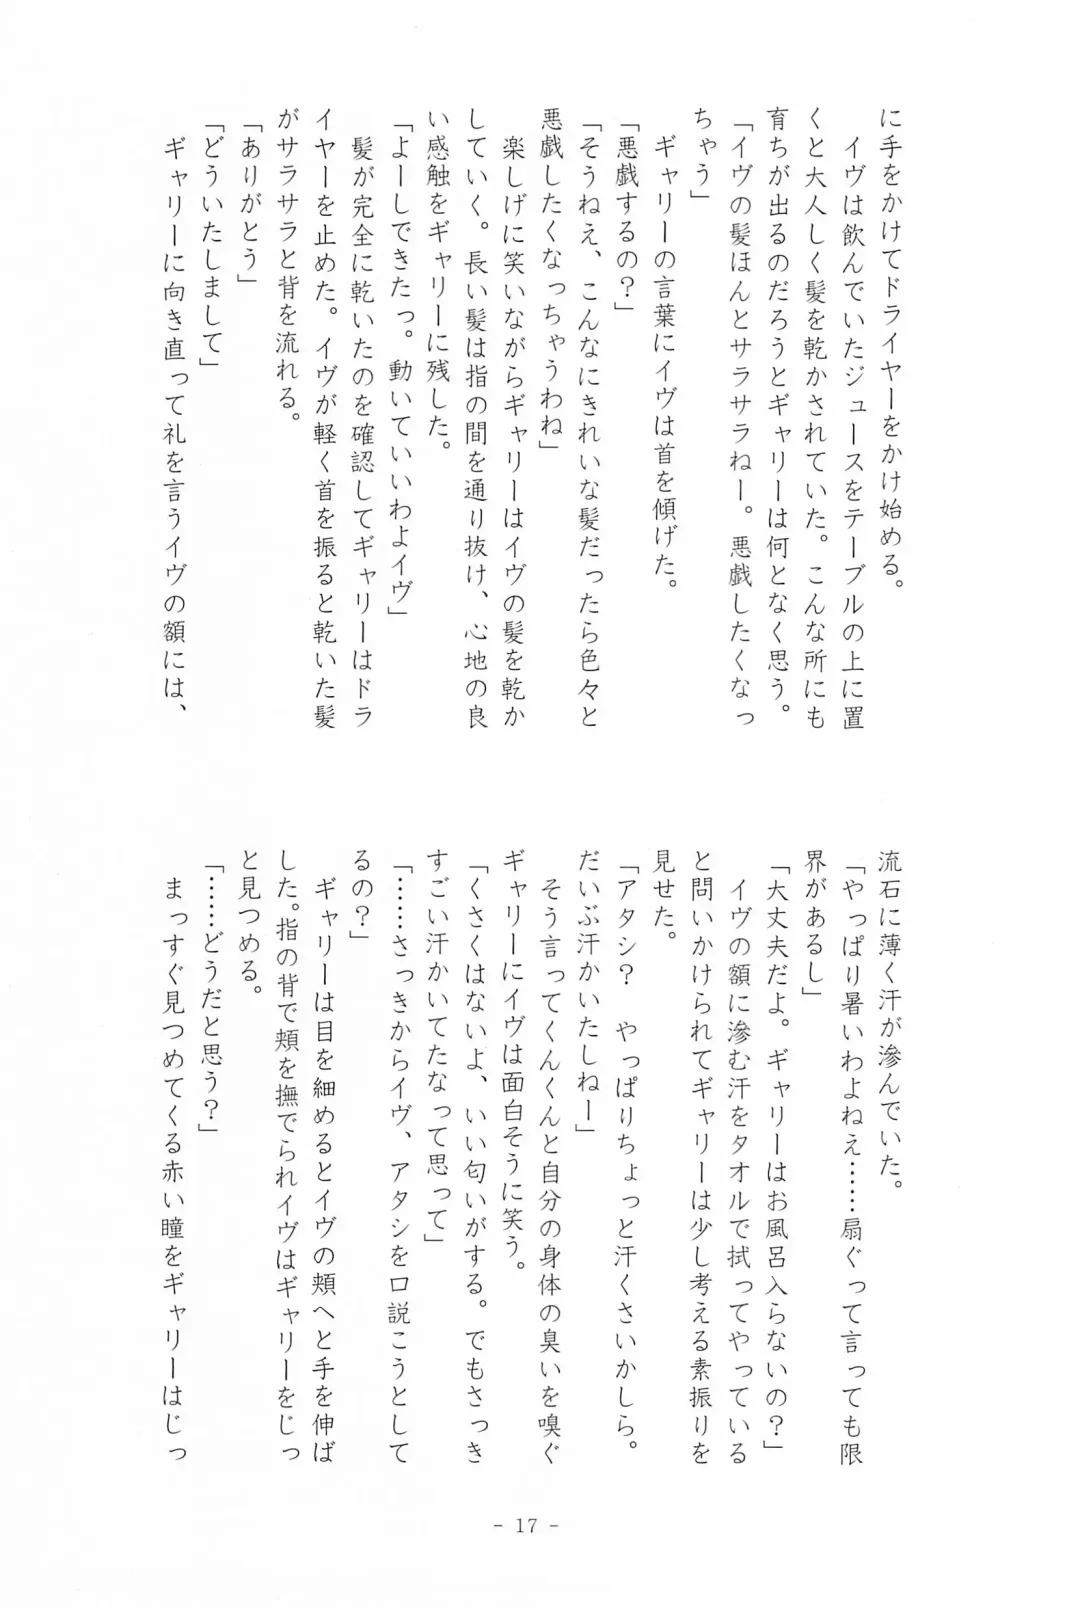 に手をかけてドライヤーをかけ始める。
　イヴは飲んでいたジュースをテーブルの上に置
くと大人しく髪を乾かされていた。こんな所にも
育ちが出るのだろうとギャリーは何となく思う。
「イヴの髪ほんとサラサラねー。悪戯したくなっ
ちゃう」
　ギャリーの言葉にイヴは首を傾げた。
「悪戯するの？」
「そうねえ、こんなにきれいな髪だったら色々と
悪戯したくなっちゃうわね」
　楽しげに笑いながらギャリーはイヴの髪を乾か
していく。長い髪は指の間を通り抜け、心地の良
い感触をギャリーに残した。
「よーしできたっ。動いていいわよイヴ」
　髪が完全に乾いたのを確認してギャリーはドラ
イヤーを止めた。イヴが軽く首を振ると乾いた髪
がサラサラと背を流れる。
「ありがとう」
「どういたしまして」
　ギャリーに向き直って礼を言うイヴの額には、
流石に薄く汗が滲んでいた。
「やっぱり暑いわよねえ……扇ぐって言っても限
界があるし」
「大丈夫だよ。ギャリーはお風呂入らないの？」
　イヴの額に滲む汗をタオルで拭ってやっている
と問いかけられてギャリーは少し考える素振りを
見せた。
「アタシ？　やっぱりちょっと汗くさいかしら。
だいぶ汗かいたしねー」
　そう言ってくんくんと自分の身体の臭いを嗅ぐ
ギャリーにイヴは面白そうに笑う。
「くさくはないよ、いい匂いがする。でもさっき
すごい汗かいてたなって思って」
「……さっきからイヴ、アタシを口説こうとして
るの？」
　ギャリーは目を細めるとイヴの頬へと手を伸ば
した。指の背で頬を撫でられイヴはギャリーをじっ
と見つめる。
「……どうだと思う？」
　まっすぐ見つめてくる赤い瞳をギャリーはじっ
- 17 -